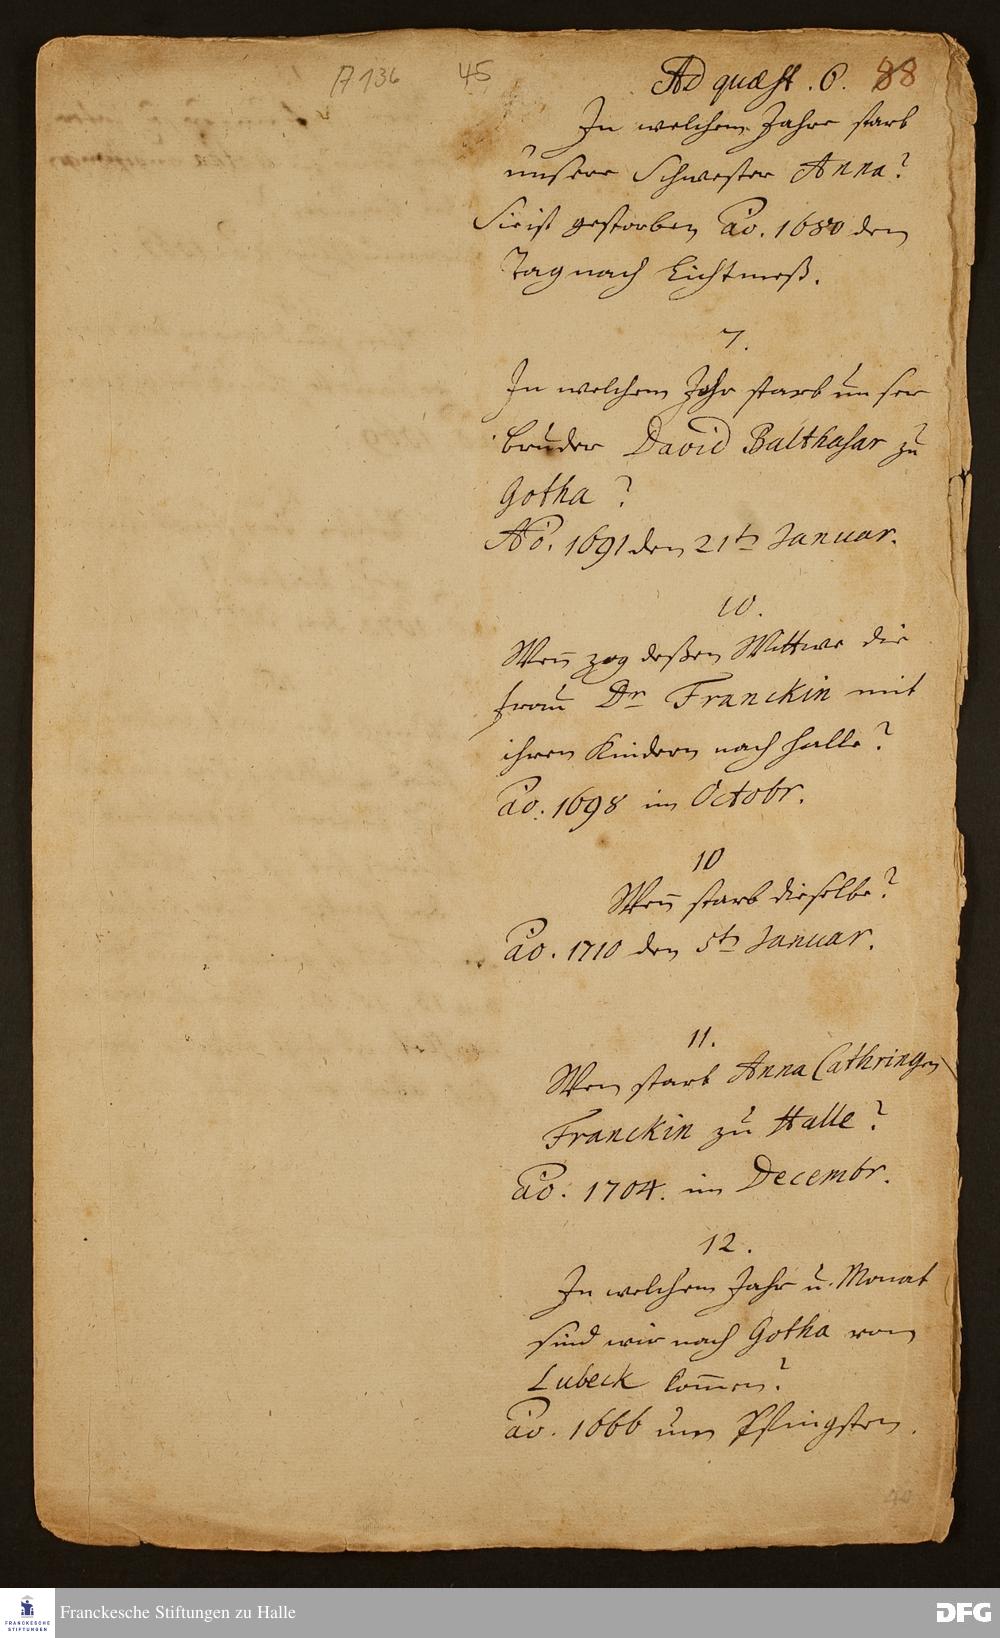 A 136 45 Ad quæst. 6. 88
In welchem Jahre starb
unsere Schwester Anna?
Sie ist gestorben Aō. 1680 den
Tag nach Lichtmeß.
7.
In welchem Jahr starb unser
Bruder David Balthasar zu
Gotha?
Aō. 1691 den 21th Januar.
10.
Wen̄ zog deßen Wittwe die
Frau Dr Franckin mit
ihren Kindern nach Halle?
Aō. 1698 im Octobr.
10
Wen̄ starb dieselbe?
Aō. 1710 den 5th Januar.
11.
Wen starb Anna Cathringen
Franckin zu Halle?
Aō. 1704. im Decembr.
12.
In welchem Jahr u. Monat
sind wir nach Gotha von
Lubeck kom̄en?
Aō. 1666 um Pfingsten.
FRANCKESCHE
STIFTUNGEN
Franckesche Stiftungen zu Halle
DFG